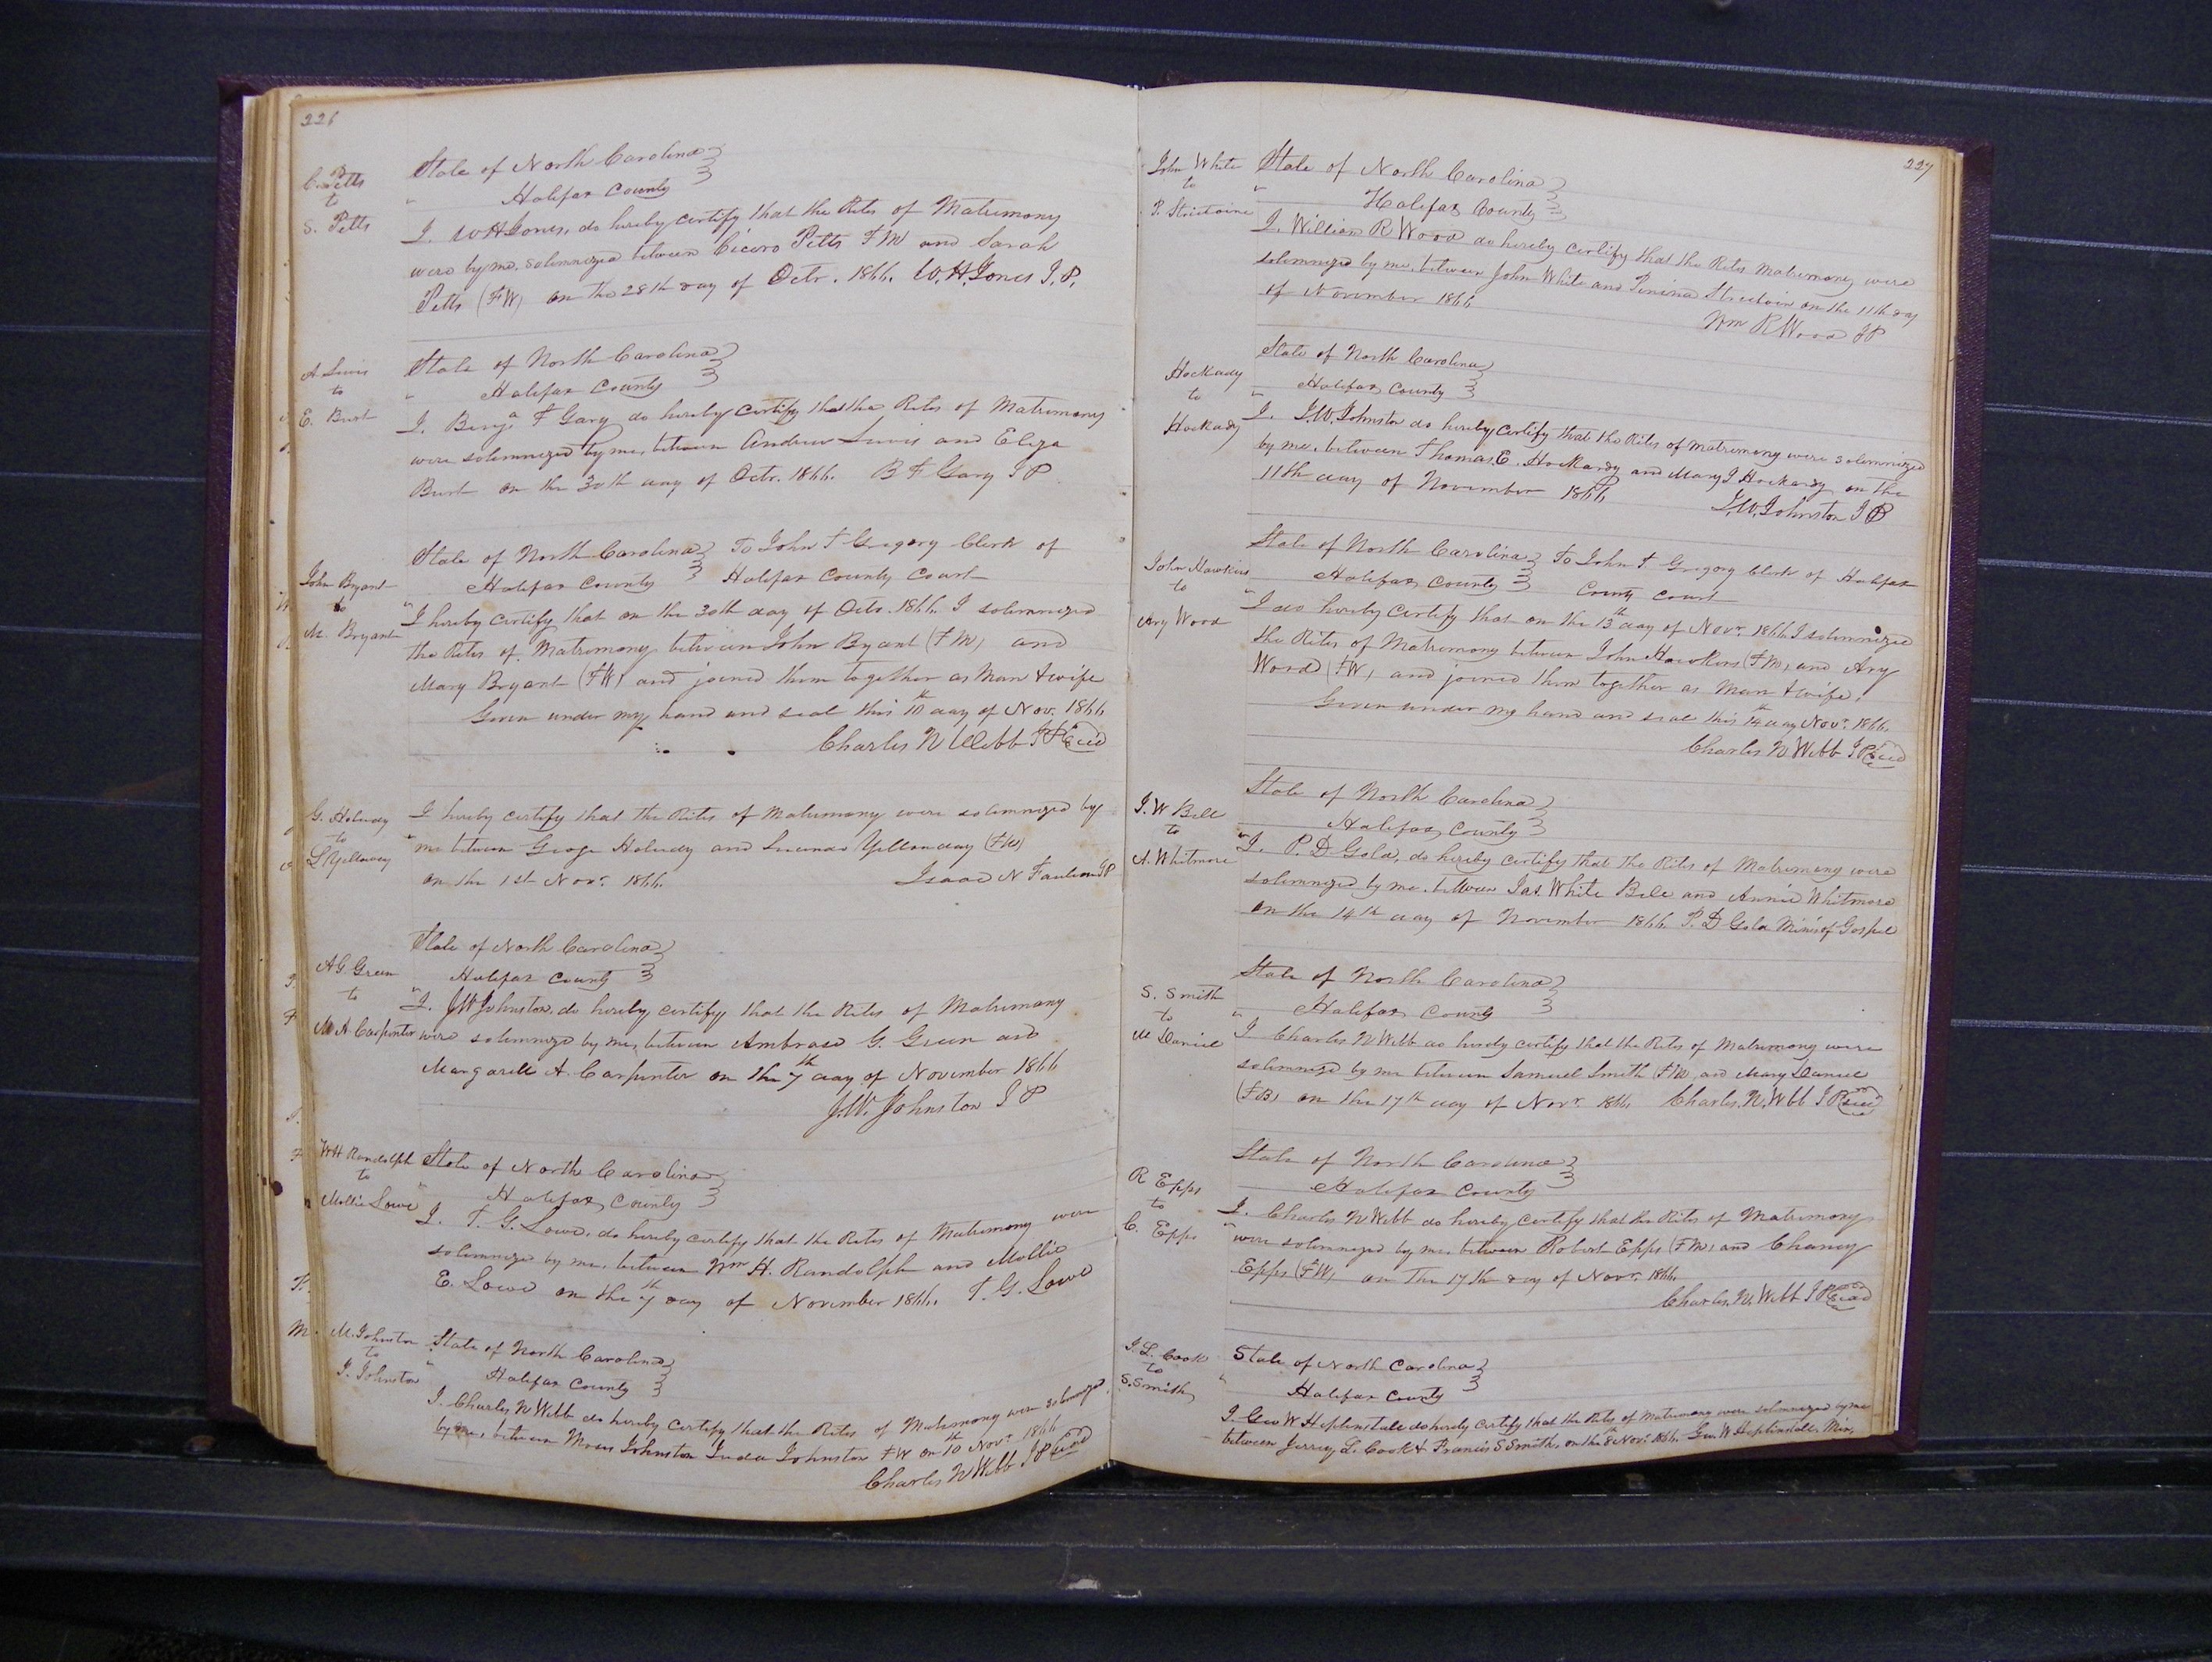 226
Cic Pitts
to
S. Pitts
State of North Carolina
Halifax County
I. W H Jones, do hereby certify that the Rites of Matrimony
were by me, solemnized between Cicero Pitts F M and Sarah
Pitts (F W) on the 28th day of Octr. 1866. W. H. Jones J. P.
A Lewis
to
E. Burt
State of North Carolina
Halifax County
I. Benja F Gary do hereby certify that the Rites of Matrimony
were solemnized by me, between Andrew Lewis and Eliza
Burt on the 30th day of Octr. 1866. B F Gary J P
John Bryant
to
M. Bryant
State of North Carolina To John T Gregory Clerk of
Halifax County Halifax County Court
I hereby certify that on the 30th day of Octr. 1866 I solemnized
the Rites of Matrimony between John Bryant (F M) and
Mary Bryant (F W) and joined them together as Man & wife
Given under my hand and seal this 10th day of Nov. 1866
Charles N Webb J P Seal
G. Holiday
to
L Yelloway
I hereby certify that the Rites of Matrimony were solemnized by
me between George Holiday and Lucinda Yelloway (F W)
on the 1st Novr. 1866.
Isaac N Faulcon J P
A G Green
to
M A Carpenter
State of North Carolina
Halifax County
I. J W Johnston, do hereby certify that the Rites of Matrimony
were solemnized by me, between Ambrose G. Green and
Margarett A. Carpenter on the 7th day of November 1866
J. W. Johnston J P
W H Randolph
to
Mollie Lowe
State of North Carolina
Halifax County
I. T. G. Lowe, do hereby certify that the Rites of Matrimony were
solemnized by me, between Wm H. Randolph and Mollie
E. Lowe on the 7th day of November 1866. T. G. Lowe
M. Johnston
to
J. Johnston
State of North Carolina
Halifax County
I. Charles N Webb do hereby certify that the Rites of Matrimony were solemnized
by me, between Moses Johnston Juda Johnston F W on 10th Novr. 1866
Charles N Webb J P Seal
227
John White
to
P. Strictoine
State of North Carolina
Halifax County
I. William R Wood do hereby certify that the Rites Matrimony were
solemnized by me, between John White and Penina on the 11th day
of November 1866
Wm R Wood J P
Hockady
to
Hockady
State of North Carolina
Halifax County
I. J. W. Johnston do hereby certify that the Rites of Matrimony were solemnized
by me, between Thomas E. Hockady and Mary J Hockady on the
11th day of November 1866
J. W. Johnston J P
John Hawkins
to
Ary Wood
State of North Carolina To John T Gregory Clerk of Halifax
Halifax County County Court
I do hereby certify that on the 13th day of Novr. 1866 I solemnized
the Rites of Matrimony between John Hawkins (F M) and Ary
Wood (F W) and joined them together as Man & wife.
Given under my hand and seal this 14th day Novr. 1866.
Charles N Webb J P Seal
J. W Bell
to
A. Whitmore
State of North Carolina
Halifax County
I. P. D Gold, do hereby certify that the Rites of Matrimony were
solemnized by me, between Jas. White Bell and Annie Whitmore
on the 14th day of November 1866 P. D Gold Min. of Gospel
S. Smith
to
M Daniel
State of North Carolina
Halifax County
I Charles N Webb do hereby certify that the Rites of Matrimony were
solemnized by me between Samuel Smith (F M) and Mary Daniel
(F B) on the 17th day of Novr. 1866 Charles. N. Webb J P Seal
R Epps
to
C. Epps
State of North Carolina
Halifax County
I. Charles N Webb do hereby certify that the Rites of Matrimony
were solemnized by me, between Robert Epps (F M) and Chaney
Epps (F W) on the 17th day of Novr. 1866.
Charles. N. Webb J P Seal
J. L. Cook
to
S. Smith
State of North Carolina
Halifax County
I. Geo W Heptinstall do hereby certify that the Rites of Matrimony were solemnized by me
between Jerry L. Cook & Francis S Smith, on the 8th Novr. 1866. Geo. W Heptinstall. Min.